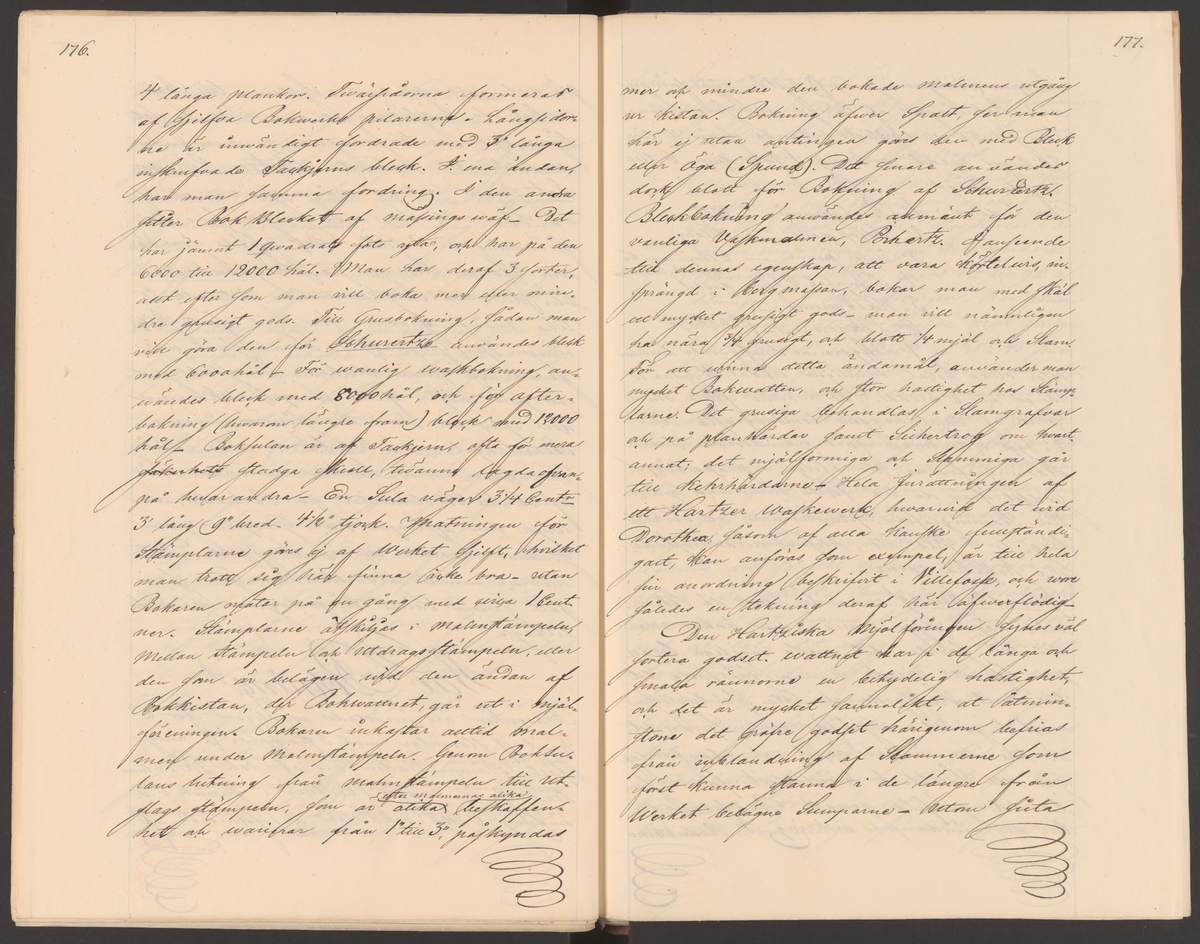 176.
4 långa plankor. Tvärsidorna formeras
af sjelfva Bokwerks pilarerne. Långsidor-
ne är inwäntigt fordrade med 3" långa
inskrufvade Tackjerns bleck. I ena ändan,
har man samma fordring. I den andra
sitter Bok Blecket af massings wäf_ Det
har jämnt 1 qvadrat fots ytar, och har på den
6000 till 12000 hål. Man har deraf 3 sorter,
allt efter som man vill boka mer eller min-
dre grusigt gods. Till Grusbokning, sådan man
vill göra den för Schurertz användes bleck
med 6000 hål_ För wanlig waskbokning, an-
wändes bleck med 8000 hål, och för after-
bokning (hwarom längre fram) bleck med 12000
hål_ Boksulan är af Tackjern, ofta för mera
säkerhets stadga skuld, twänne lagda ofvan-
på hwarandra_ En Sula väger 3 1/4 Centr
3' lång 9" bred. 4 1/2" tjock. Matningen för
Stämplarne göres ej af Werket Sjelft, hvilket
man trott sig här finna icke bra_ utan
Bokaren matar på en gång med cirka 1 Cent
ner. Stämplarne åtskiljas i Malmstämpeln,
Mellan stämpeln och Utdragsstämpeln, eller
den som är belägen wid den ändan af
Bokkistan, der Bokwattnet, går ut i mjöl-
föreningen. Bokaren inkastar alltid mal-
men under Malmstämpeln. Genom Boksu-
lans lutning från malmstämpeln till Ut-
slags stämpeln, som är olika
efter Malmernas olika
beskaffen-
het och warierar från 1" till 3", påskyndas
177.
mer och mindre den bokade malmens utgång
ur kistan. Bokning äfwer Spalt, ser man
här ej utan antingen göres den med Bleck
eller Öga (Spund). Det senare användes
dock blott för Bokning af Schurertz.
Bleckbokning användes allmänt för den
vanliga Waskmalmen, Pocherz. I anseende
till dennas egenskap, att vara körtelwis, in-
sprängd i bergmassan, bokar man med skäl
ett mycket grusigt gods_ man vill nämnligen
ha nära 3/4 grusigt, och blott 1/4 mjöl och Slam.
För att winna detta ändamål, använder man
mycket Bokwatten, och stor hastighet hos Stämp-
larne. Det grusiga behandlas i Slamgrafvar
och på planhärdar samt Sichertrog om hwart
annat; det mjölformiga och slammiga går
till Kehrhärdarne_ Hela Inrättningen af
ett Hartzer Waskewerk, hwarwid det wid
Dorothea, såsom af alla kanske fullständi-
gast, kan anföras som exempel, är till hela
sin anordning beskrifvit i Villefosse, och wore
således en tekning deraf här äfwerflödig_
Den Hartziska Mjölföringen synes väl
sortera godset. Wattnet har i de långa och
smala rännorne en betydelig hastighet,
och det är mycket sannolikt, at åtmin-
stone det gröfre godset härigenom befrias
från inblandning af Slammerne som
först kunna stanna i de längre från
Werket belägne Sumparne_ Utom sluta